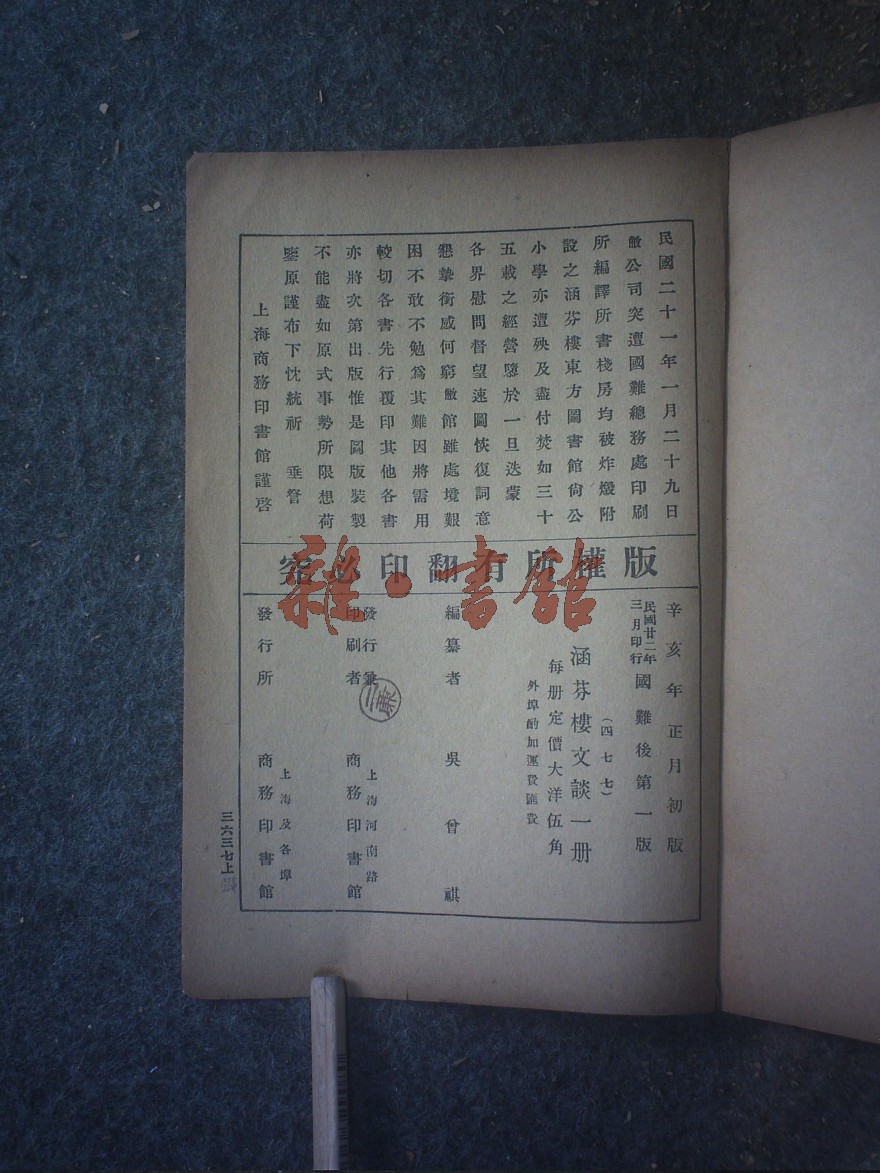 民國二十一年一月二十九日
敝公司突遭國難總務處印刷
所編譯所書棧房均被炸燬附
設之涵芬樓東方圖書館尙公
小學亦遭殃及盡付焚如三十
五載之經營隳於一旦迭蒙
各界慰問督望速圖恢復詞意
懇摯銜感何窮敝館雖處境艱
困不敢不勉爲其難因將需用
較切各書先行覆印其他各書
亦將次第出版惟是圖版裝製
不能盡如原式事勢所限想荷
鑒原謹布下忱統祈 垂詧
上海商務印書館謹啓
版權所有翻印必究
雜·書館
辛亥年正月初版
民國廿二年三月印行 國難後第一版
(四七七)
涵芬樓文談一册
每册定價大洋伍角
外埠酌加運費匯費
編纂者 吳曾祺
發行兼印刷者 上海河南路 商務印書館
發行所 上海及各埠 商務印書館
三六三七上